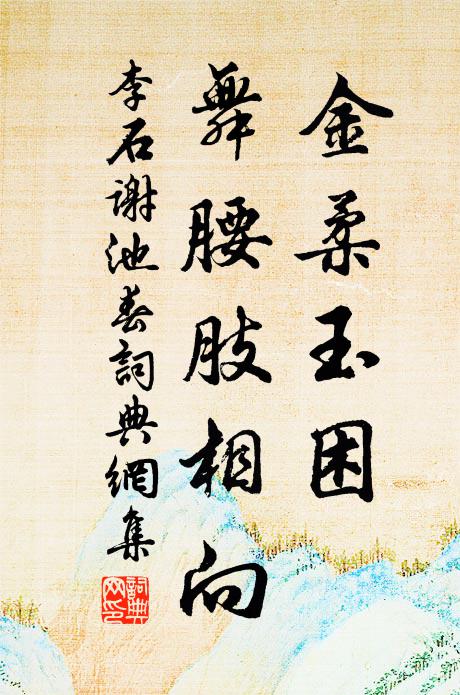 金柔玉困
舞腰肢相向
李石謝池春詞典網集
詞典